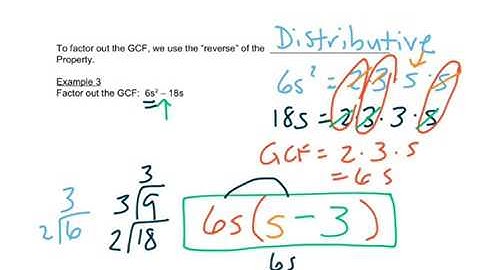 To factor out the GCF, we use the "reverse" of the Distributive
Property.
Example 3
Factor out the GCF: 6s² – 18s
6s² = 2·3·s·s
18s = 2·3·3·s
GCF = 2·3·s
= 6s
3
2|6
3
3|9
2|18
6s(s-3)
6s